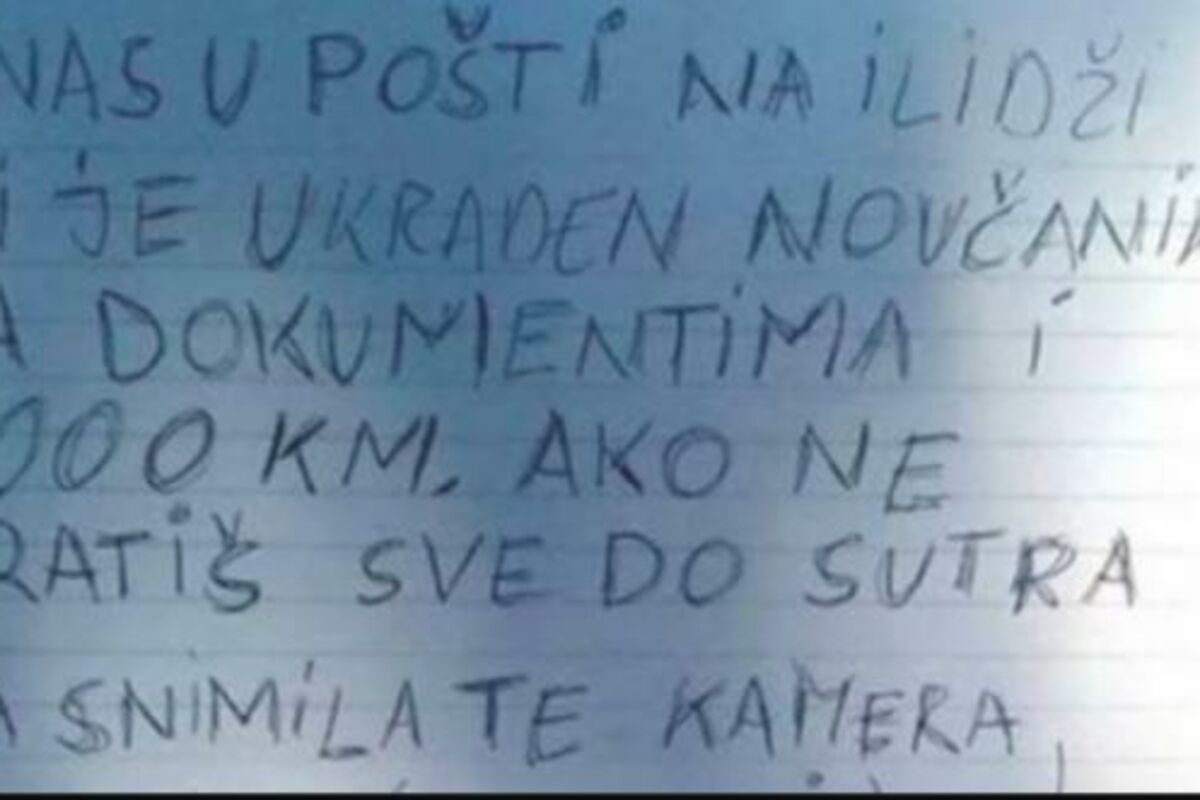 NAS U POŠTi NA iLiDŽi
i JE UKRADEN NOVČANi
A DOKUMENTiMA i
000 KM. AKO NE
RATiŠ SVE DO SUTRA
A SNiMiLA TE KAMERA